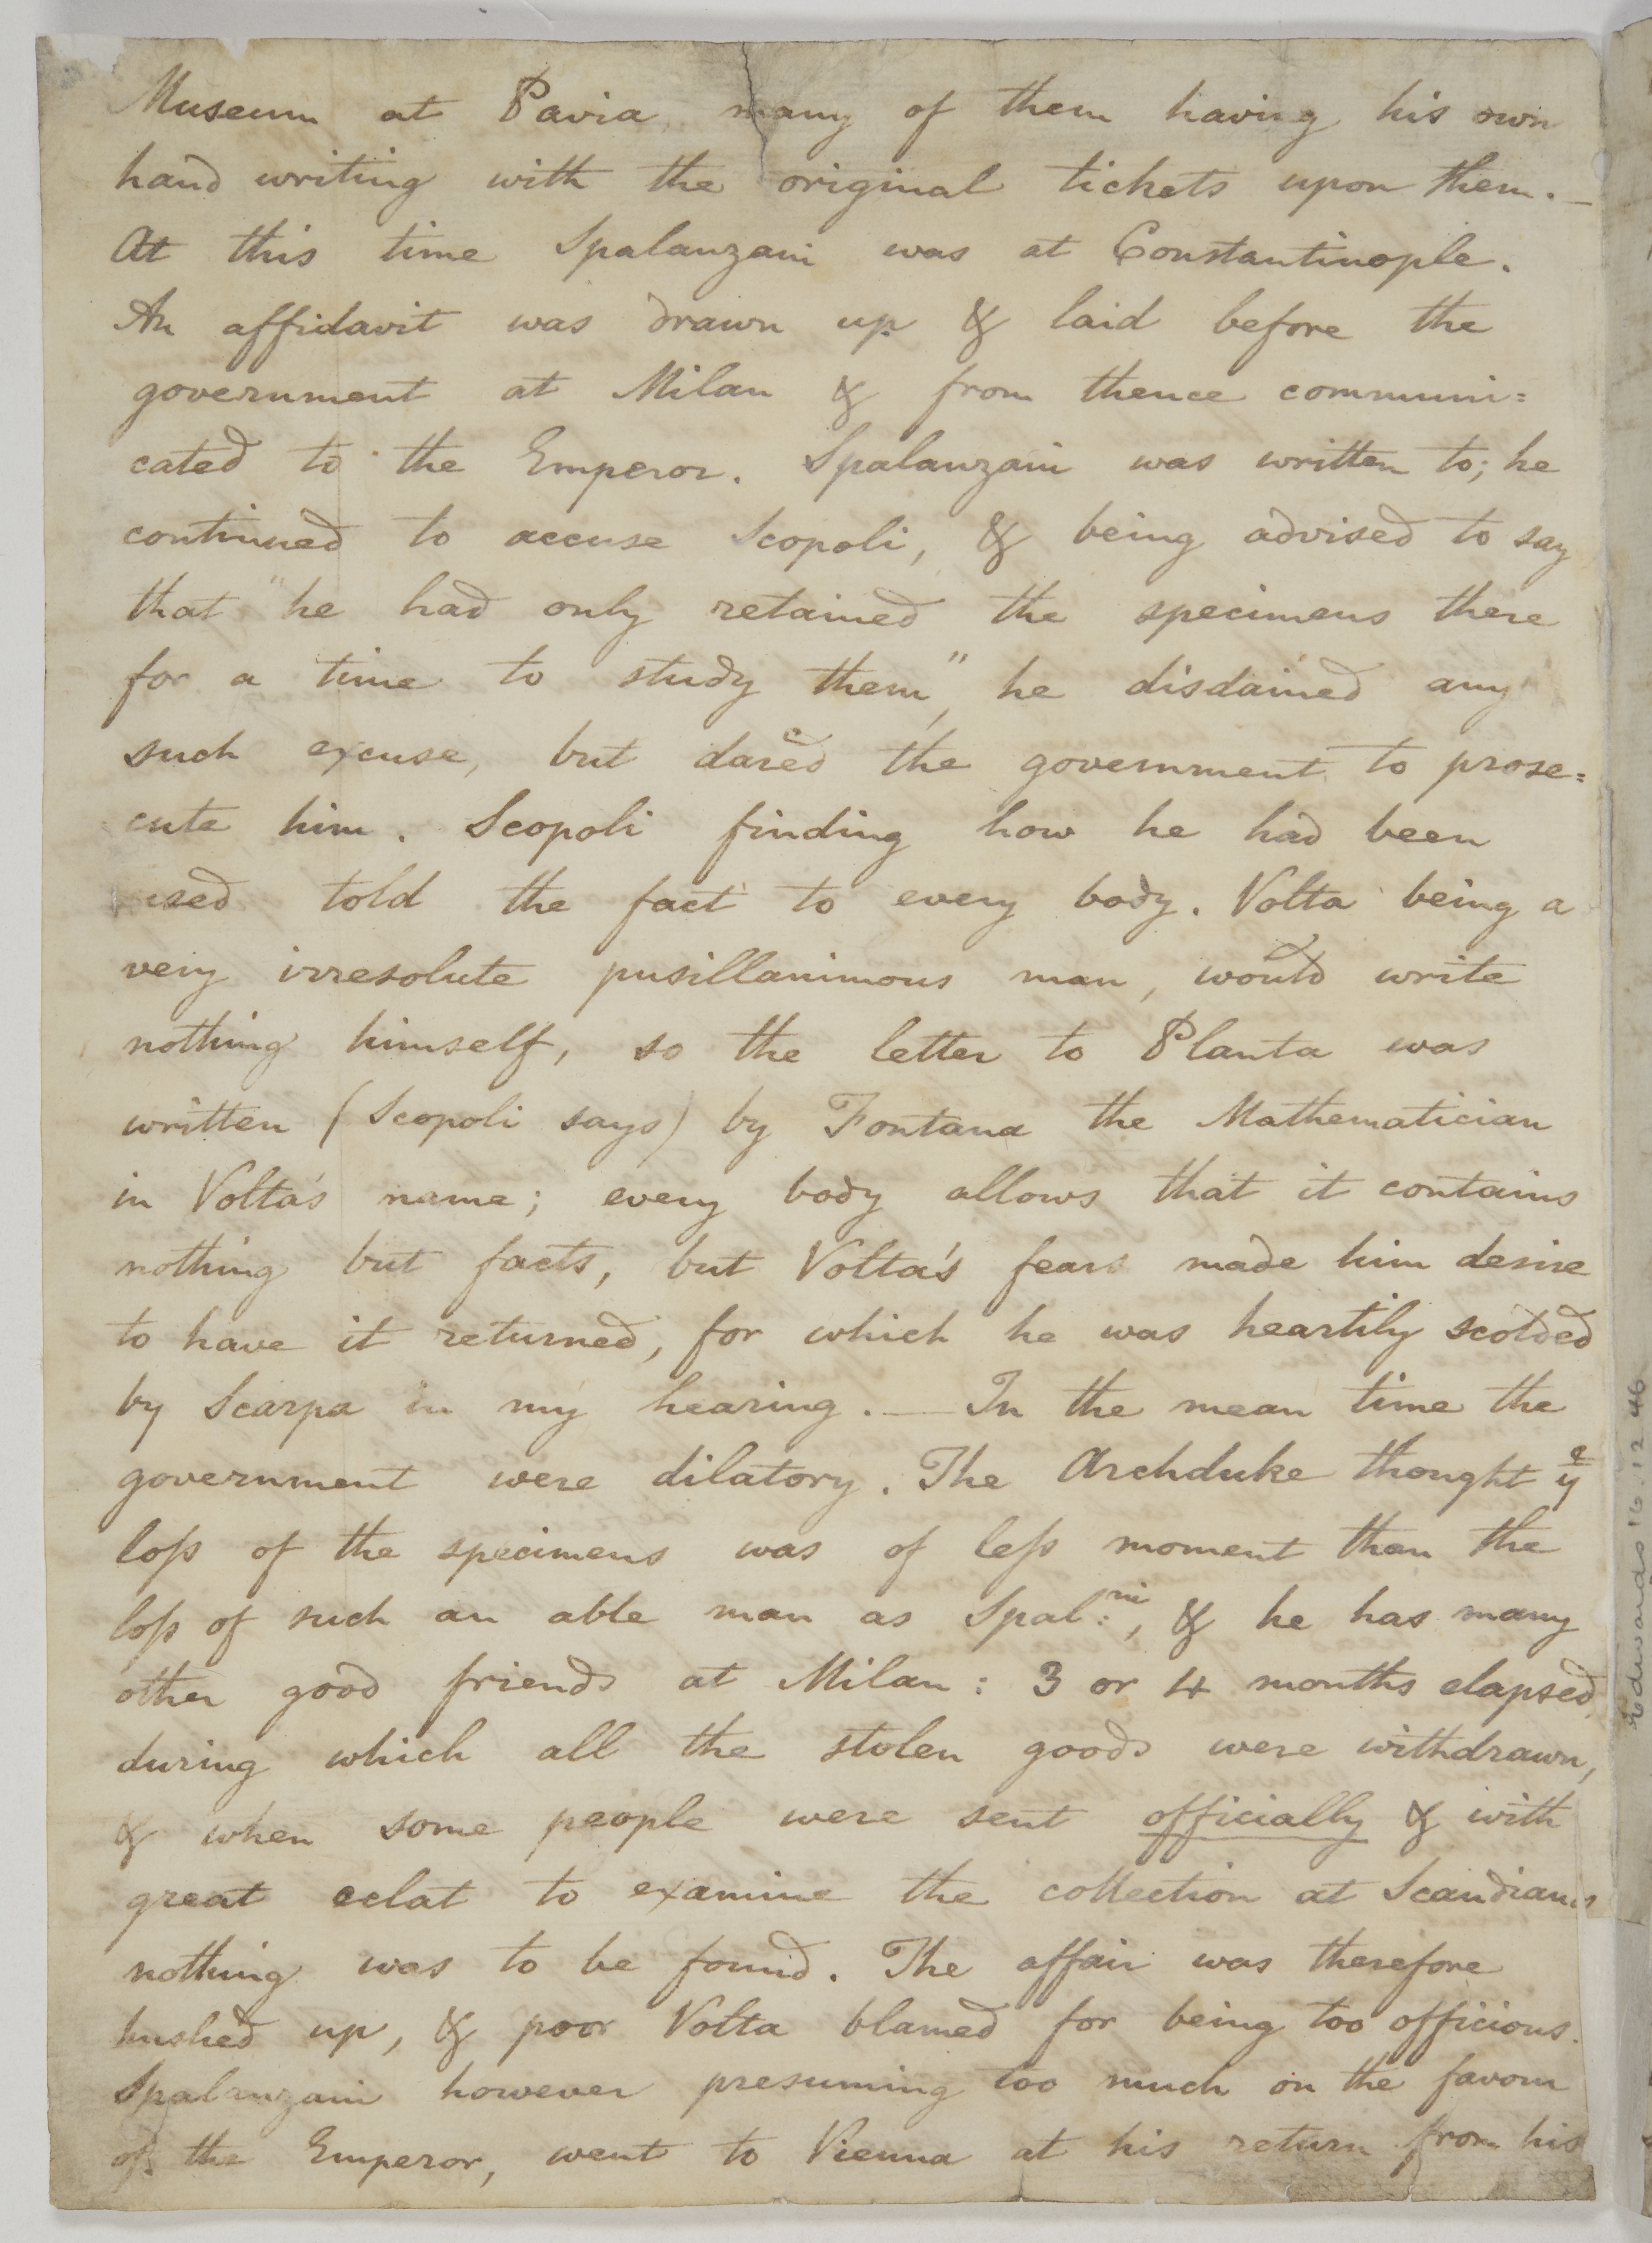 Museum at Pavia, many of them having his own
hand writing with the original tickets upon them._
At this time Spalanzani was at Constantinople.
An affidavit was drawn up & laid before the
government at Milan & from thence communi=
cated to the Emperor. Spalanzani was written to; he
continued to accuse Scopoli, & being advised to say
that "he had only retained the specimens there
for a time to study them", he disdained any
such excuse, but dared the government to prose=
cute him. Scopoli finding how he had been
used told the fact to every body. Volta being a
very irresolute pusillanimous man, would write
nothing himself, so the letter to Planta was
written (Scopoli says) by Fontana the Mathematician
in Volta's name; every body allows that it contains
nothing but facts, but Volta's fears made him desire
to have it returned, for which he was heartily scolded
by Scarpa in my hearing. — In the mean time the
government were dilatory. The Archduke thought ye
loſs of the specimens was of leſs moment than the
loſs of such an able man as Spal:ni, & he has many
other good friends at Milan: 3 or 4 months elapsed,
during which all the stolen goods were withdrawn,
& when some people were sent officially & with
great eclat to examine the collection at Scandiano
nothing was to be found. The affair was therefore
hushed up, & poor Volta blamed for being too officious.
Spalanzani however presuming too much on the favour
of the Emperor, went to Vienna at his return from his
Edwards 16.12.46